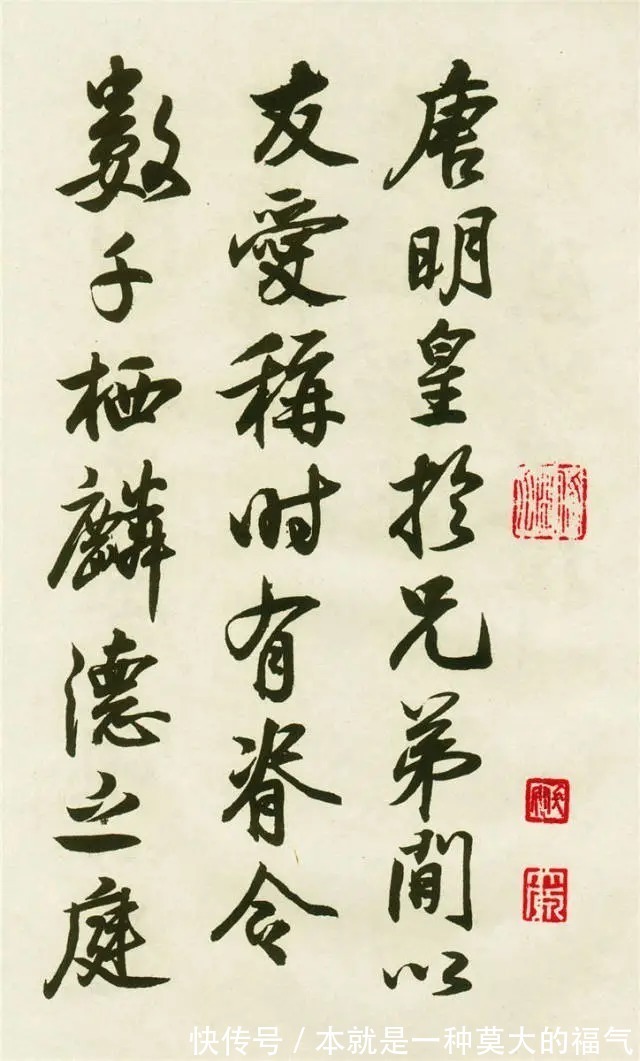 唐明皇於兄弟間以
友愛稱時有脊令
數千栖麟德之庭
快传号/本就是一种莫大的福气